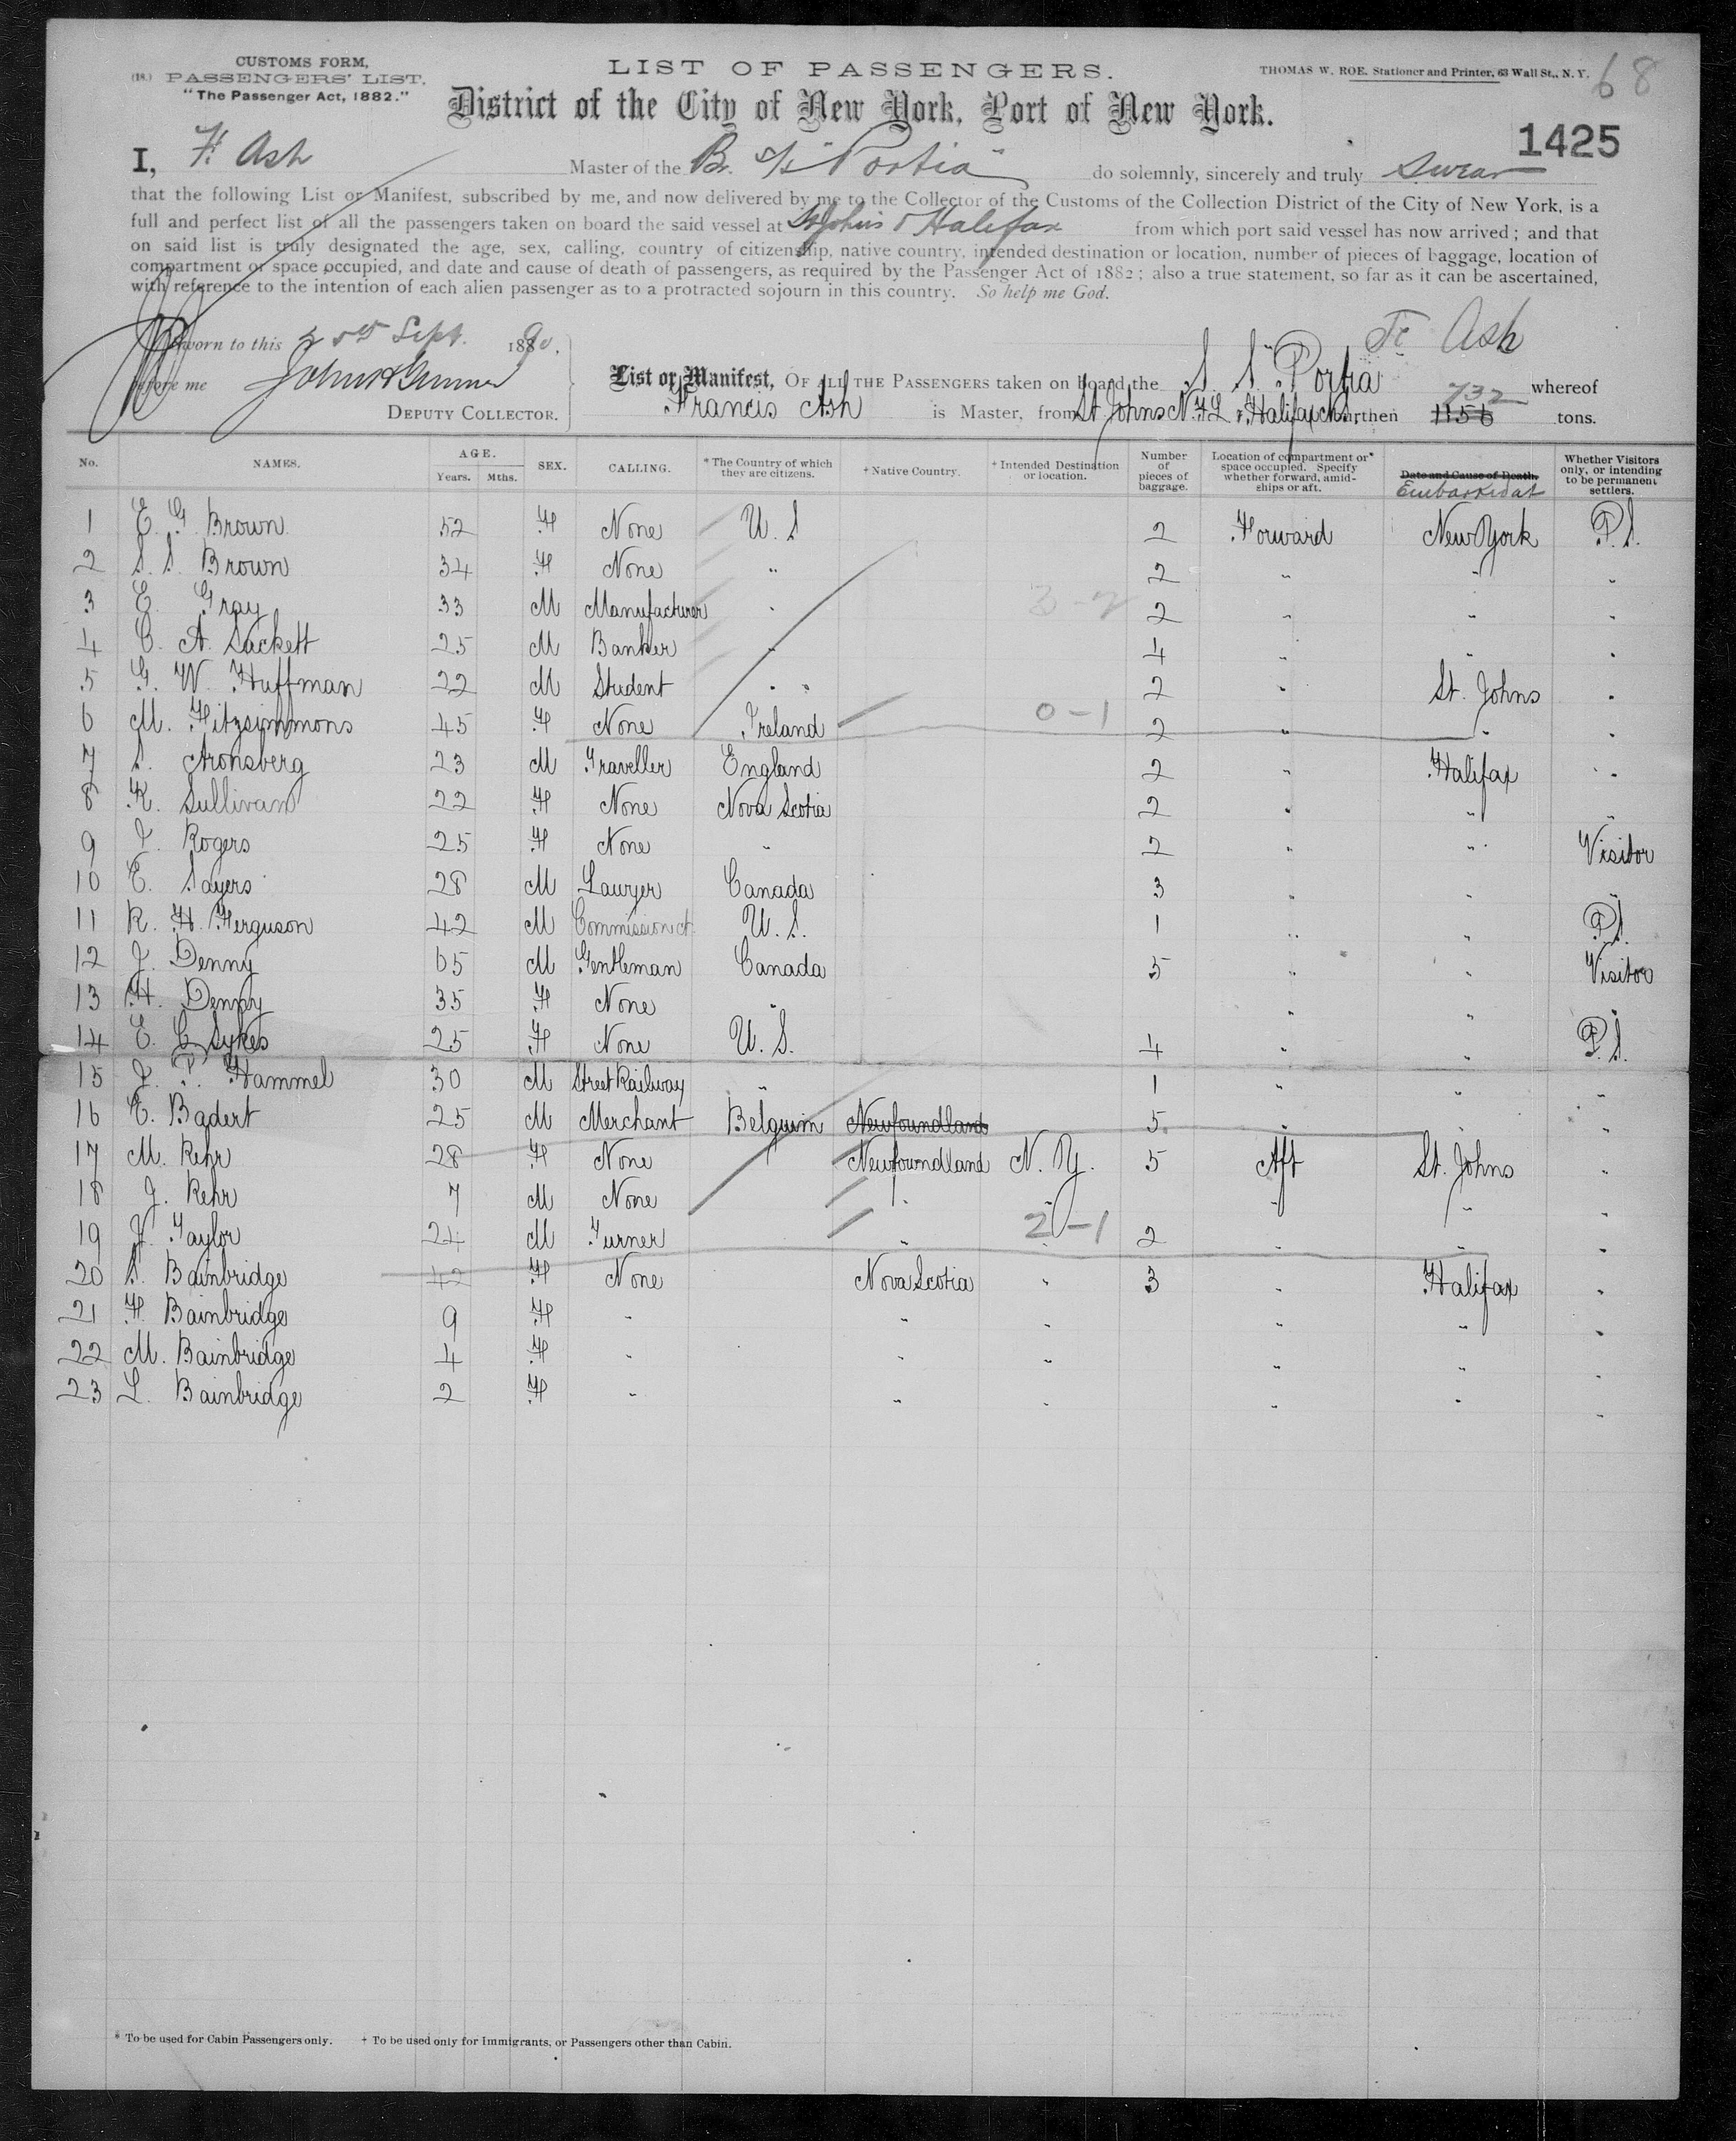 CUSTOMS FORM,
(18.) PASSENGERS' LIST.
"The Passenger Act, 1882."
LIST OF PASSENGERS.
THOMAS W. ROE, Stationer and Printer, 63 Wall St., N. Y.
68
District of the City of New York, Port of New York.
1425
I, F. Ash Master of the Br. S/S "Portia" do solemnly, sincerely and truly Swear
that the following List or Manifest, subscribed by me, and now delivered by me to the Collector of the Customs of the Collection District of the City of New York, is a
full and perfect list of all the passengers taken on board the said vessel at St Johns & Halifax from which port said vessel has now arrived; and that
on said list is truly designated the age, sex, calling, country of citizenship, native country, intended destination or location, number of pieces of baggage, location of
compartment or space occupied, and date and cause of death of passengers, as required by the Passenger Act of 1882; also a true statement, so far as it can be ascertained,
with reference to the intention of each alien passenger as to a protracted sojourn in this country. So help me God.
Sworn to this 25th Sept. 1890,
Fr Ash
before me
DEPUTY COLLECTOR.
List or Manifest, OF ALL THE PASSENGERS taken on board the S. S. "Portia" whereof
Francis Ash is Master, from St Johns N.F.L & Halifax N.S. burthen 1156 732 tons.
No. NAMES. AGE. Years. Mths. SEX. CALLING. * The Country of which they are citizens. + Native Country. + Intended Destination or location. Number of pieces of baggage. Location of compartment or space occupied. Specify whether forward, amidships or aft.* Date and Cause of Death. Embarked at Whether Visitors only, or intending to be permanent settlers.
1 E. G. Brown 52 F None U. S 2 Forward New York P. S.
2 S. S. Brown 34 F None " 2 " " "
3 E. Gray 33 M Manufacturer " 3-2 2 " " "
4 C. A. Sackett 25 M Banker " 4 " " "
5 G. W. Huffman 22 M Student " " 2 " St. Johns "
6 M. Fitzsimmons 45 F None Ireland 0-1 2 " " "
7 S. Aronsberg 23 M Traveller England 2 " Halifax "
8 K. Sullivan 22 F None Nova Scotia 2 " " "
9 J. Rogers 25 F None " 2 " " Visitor
10 E. Sayers 28 M Lawyer Canada 3 " " "
11 R. H. Ferguson 42 M Commission At U. S. 1 " " P. S.
12 J. Denny 65 M Gentleman Canada 5 " " Visitor
13 H. Denny 35 F None " " " "
14 E. C Sykes 25 F None U. S. 4 " " P. S.
15 J. P. Hammel 30 M Street Railway " 1 " " "
16 E. Badert 25 M Merchant Belguim Newfoundland 5 " " "
17 M. Rehr 28 F None Newfoundland N. Y. 5 Aft St. Johns "
18 J. Rehr 7 M None " " " " "
19 J. Taylor 24 M Turner " 2-1 2 " " "
20 S. Bainbridge 42 F None Nova Scotia " 3 " Halifax "
21 F. Bainbridge 9 F " " " " " "
22 M. Bainbridge 4 F " " " " " "
23 L. Bainbridge 2 F " " " " " "
* To be used for Cabin Passengers only. + To be used only for Immigrants, or Passengers other than Cabin.